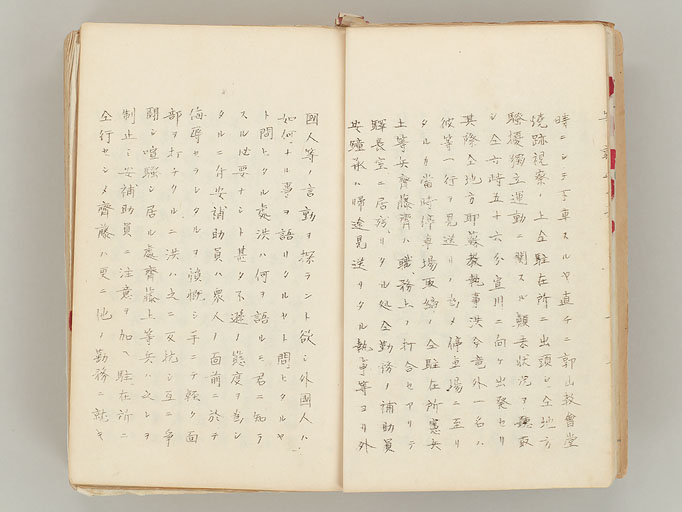 時ニシテ下車スルヤ直チニ郭山教會堂
燒跡視察ノ上仝駐在所ニ出頭シ仝地方
騷擾獨立運動ニ関スル顛末状況ヲ聽取
シ仝六時五十六分宣川ニ向ケ出発セリ
其際仝地方耶蘇教執事洪今竜外一名ハ
彼等一行ヲ見送リノ為メ停車場ニ至リ
タルカ當時停車場取締ノ仝駐在所憲兵
上等兵齊藤齊ハ職務上ノ打合セアリテ
驛長室ニ居残リタル処仝勤務ノ補助員
安鐘承ハ帰途見送リタル執事等ヨリ外
國人等ノ言動ヲ探ラント欲シ外國人ハ
如何ナル事ヲ語リタルヤト問ヒタルヤ
ト問ヒタル處洪ハ何ヲ語ルモ君ニ知ラ
スル必要ナシト甚タ不遜ノ態度ヲ為シ
タルニ付安補助員ハ衆人ノ面前ニ於テ
侮辱セラレタルヲ憤慨シ手ニテ軽ク面
部ヲ打チタルニ洪ハ之ニ反抗シ互ニ爭
鬪シ喧騷シ居ル處齊藤上等兵ハ之レヲ
制止シ安補助員ニ注意ヲ加ヘ駐在所ニ
仝行セシメ齊藤ハ更ニ他ノ勤務ニ就キ